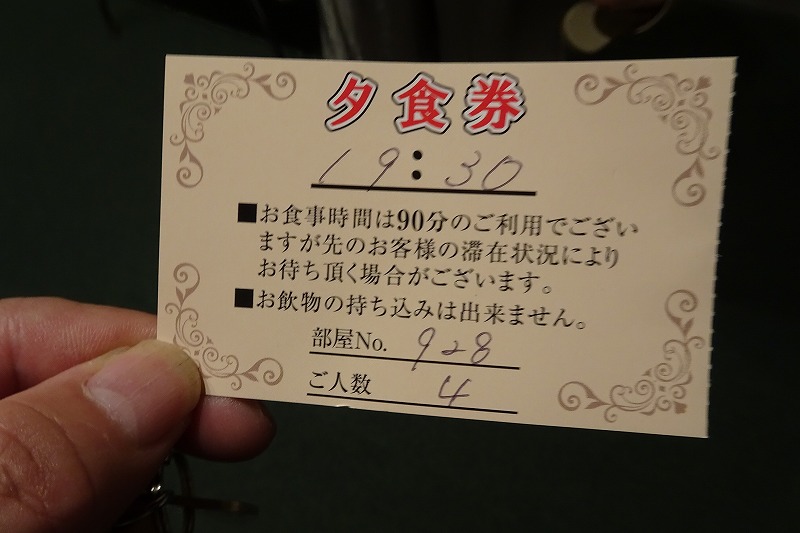 夕食券
19:30
■お食事時間は90分のご利用でござい
ますが先のお客様の滞在状況により
お待ち頂く場合がございます。
■お飲物の持ち込みは出来ません。
部屋No. 928
ご人数 4